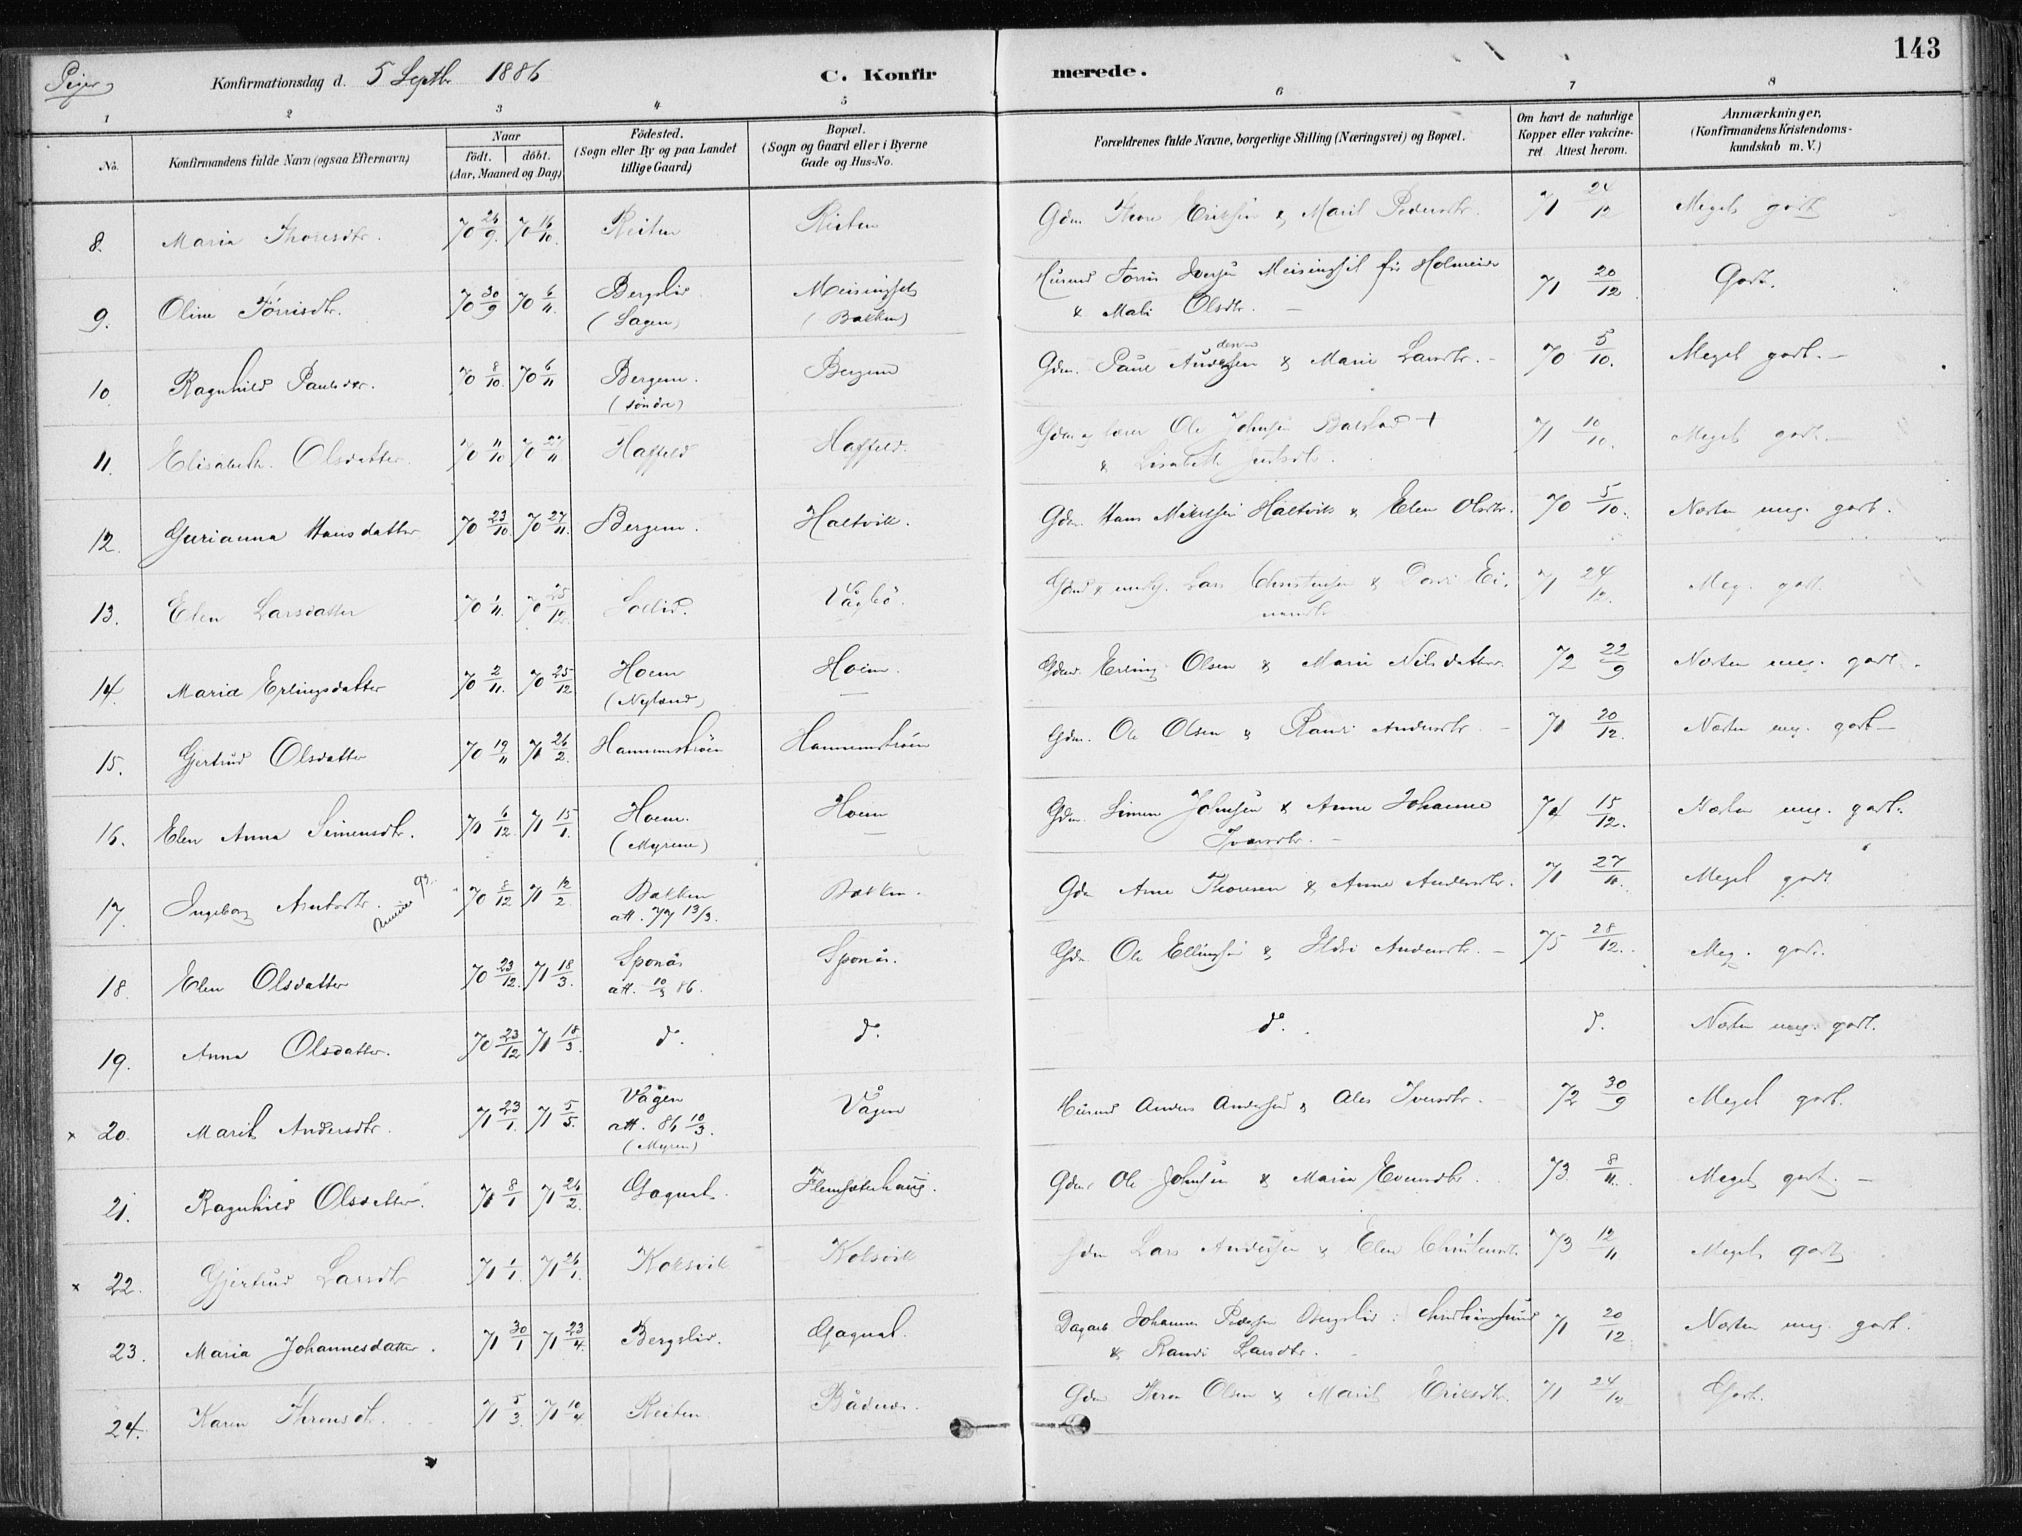 143
Piger
Konfirmationsdag d. 5 Septbr 1886 C. Konfirmerede.
1 2 3 4 5 6 7 8
No. Konfirmandens fulde Navn (ogsaa Efternavn) Naar födt. döbt. (Aar, Maaned og Dag) Födested. (Sogn eller By og paa Landet tillige Gaard) Bopæl. (Sogn og Gaard eller i Byerne Gade og Hus-No. Forældrenes fulde Navne, borgerlige Stilling (Næringsvei) og Bopæl. Om havt de naturlige Kopper eller vakcineret Attest herom. Anmærkninger, (Konfirmandens Kristendomskundskab m. V.)
8. Maria Thoresdtr. 70 26/9 70 16/10 Reiten Reiten Gdm Thore Eriksen & Marit Pedersdtr. 71 24/12 Meget godt
9. Oline Törrisdtr. 70 30/9 70 6/11 Bergslid (Hagen) Meisingset (Bakken) Husmd Törris Iversen Meisingset før Holmeide
& Mali Olsdtr. 71 20/12 Godt.
10. Ragnhild Paulsdtr. 70 8/10 70 6/11 Bergem. (söndre) Bergem Gdm. Paul Andersen & Marie Larsdtr. 70 5/10. Meget godt.
11. Elisabeth Olsdatter 70 11/10 70 27/11 Haffeld Haffeld. Gdm og lærer Ole Johnsen Balstad +
& Lisabeth 71 10/10. Meget godt.
12. Gurianna Hansdatter 70 23/10 70 27/11 Bergem. Haltvik. Gdm. Hans Mikelsen Haltvik & Elen Olsdtr. 70 5/10. Næsten meg. godt.
13. Elen Larsdatter 70 1/11. 70 25/12 Sollid. Vågbö. Lars Christensen & Dordi Ei-
nersdtr 71 24/12. Meg. godt
14. Maria Erlingsdatter 70 2/11. 70 25/12 Hoem (Nyland) Hoem. Gdm. Erling Olsen & Marie Nilsdatter. 72 22/9 Næsten meg. godt.
15. Gjertrud Olsdatter 70 19/11 71 26/2. Hannemströen Hannemströen Gdm. Ole Olsen & Randi Andersdtr. 71 20/12. Næsten meg. godt
16. Elen Anna Simensdtr. 70 6/12. 71 15/1. Hoem. (Myrene) Hoem Gdm. Simen Johnsen & Anne Johanne
Ivarsdtr. 74 15/12. Næsten meg. godt.
17. Ingeborg Arntsdtr. 70 8/12 71 12/2 Bakken att. 77 13/3. Bakken. Gdm Arne Thoresen & Anne Andersdtr. 71 27/11. Meget godt
18. Elen Olsdatter 70 23/12. 71 18/3. Sponås att. 10/3 86. Sponås. Gdm. Ole Ellingsen & Ildri Andersdtr. 75 28/12. Meg. godt.
19. Anna Olsdatter. 70 23/12 71 18/3 do. do. do. do. Næsten meg. godt.
x 20. Marit Andersdtr. 71 23/1. 71 5/5. Vågen att. 86 10/3. (Myren) Vågen Husmd Anders Andersen & Ales Iversdtr. 72 30/9 Meget godt.
21. Ragnhild Olsdatter. 71 8/1 71 26/2. Gaqnat. Flemsæterhaug. Gdm. Ole Johnsen & Maria Evensdtr. 73 8/11. Meget godt.
x 22. Gjertrud Larsdtr 71 1/1. 71 26/1. Koksvik Koksvik Gdm Lars Andersen & Elen Christensdt. 73 12/11 Meget godt
23. Maria Johannesdatter. 71 30/1 71 23/4. Bergslid. Gaqnat. Dagarb. Johannes Pedersen Bergslid i Christianssund
& Randi Larsdtr. 71 20/12. Næsten meg. godt.
24. Karen Thronsdtr. 71 5/3. 71 10/4 Reiten Bådnes. Gdm Thron Olsen & Marit Eriksdtr. 71 24/12 Godt.